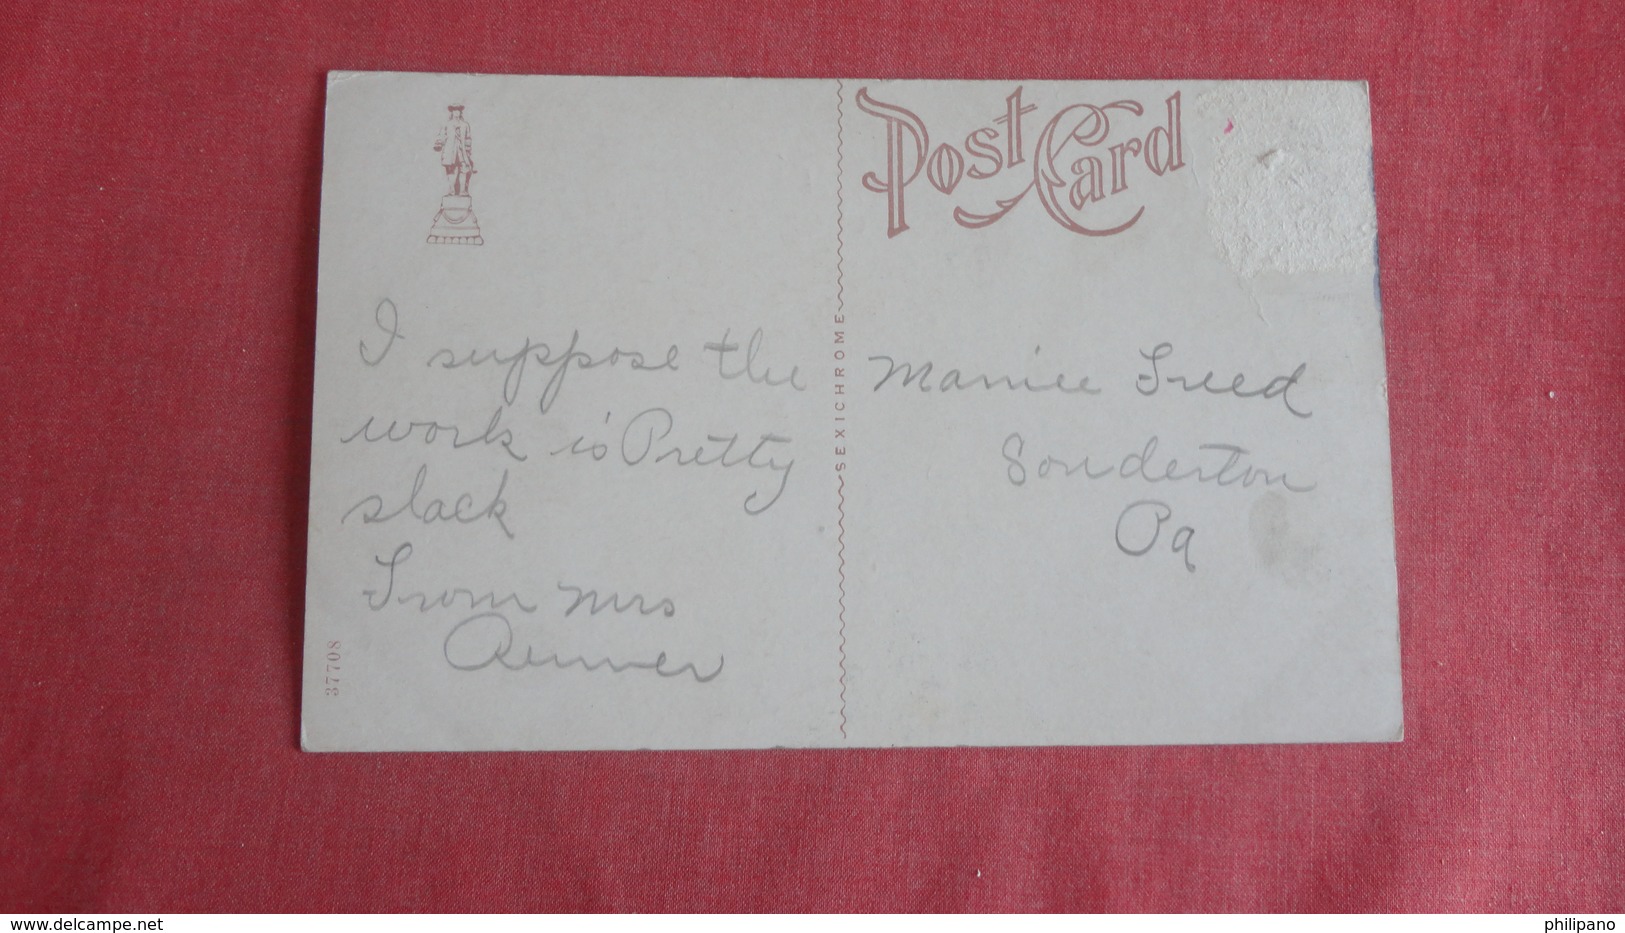 Post Card
I suppose the
work is Pretty
slack
From Mrs
SEXICHROME
Mamie Freed
Souderton
Pa
37708
www.delcampe.net
philipano